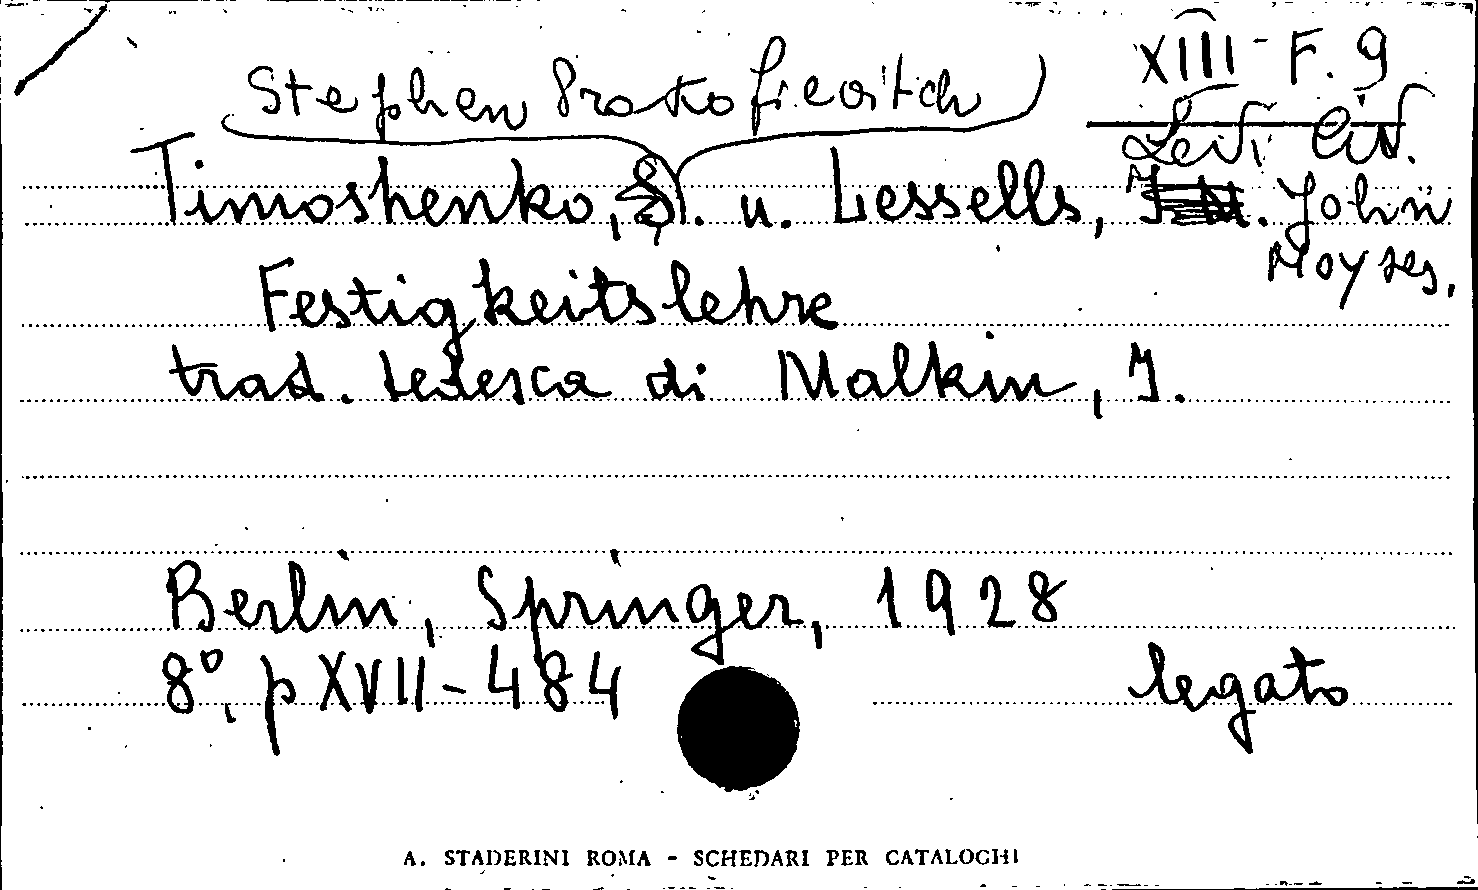 XIII - F. 9
Stephen Prokofievitch
Levi Civ.
Timoshenko, S. u. Lessells, John
Moyses,
Festigkeitslehre
trad. tedesca di Malkin, I.
Berlin, Springer, 1928
8°, p XVII-484
legato
A. STADERINI ROMA - SCHEDARI PER CATALOGHI